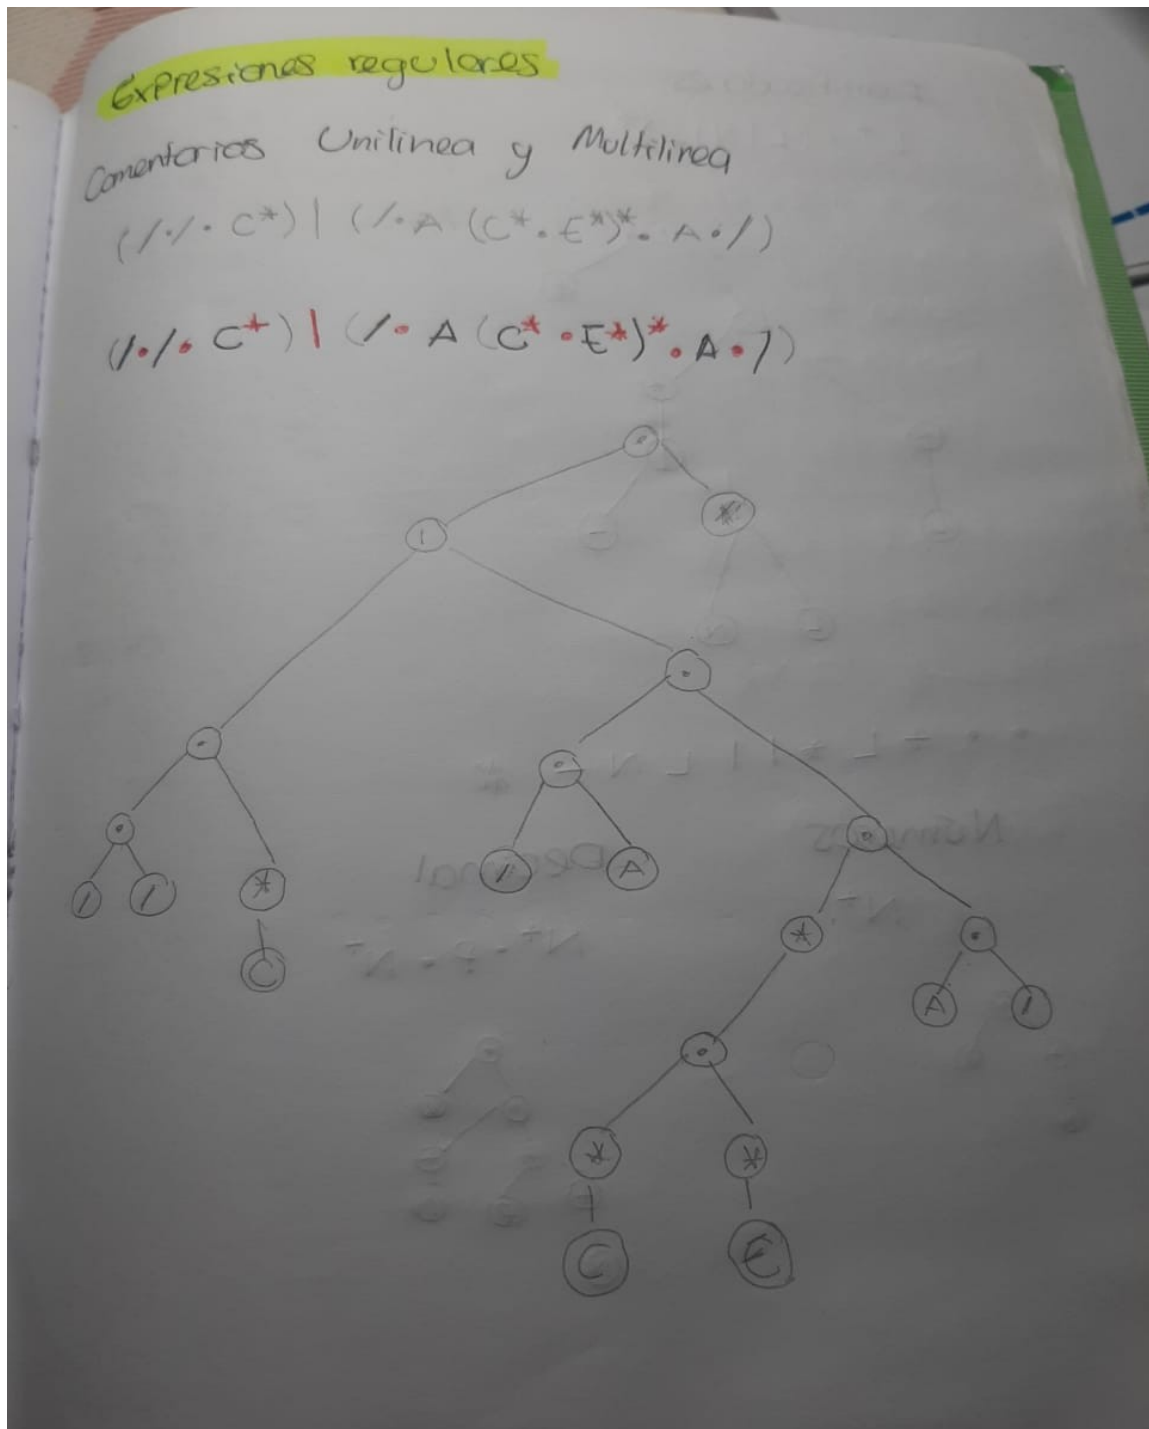 Expresiones regulares
Comentarios Unilinea y Multilinea
(/•/• C*) | (/•A (C* • E*)* • A•/)
(/•/• C*) | (/• A (C* •E*)* • A•/)
•
| *
•
•
• •
• / A
/ / * * •
C A /
•
* *
C E